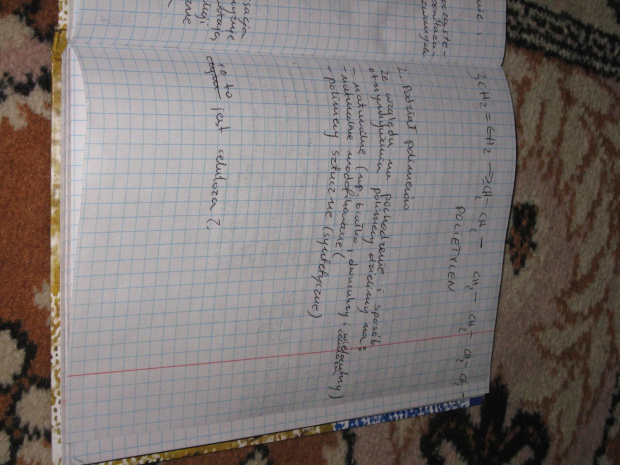 3CH2 = CH2 → CH2 - CH2 - CH2 - CH2 - CH2 - CH2 -
POLIETYLEN
2. Podział polimerów
ze względu na pochodzenie i sposób
otrzymywania polimery dzielimy na:
- naturalne (np. białko, dwucukry i wielocukry)
celuloza
- naturalne modyfikowane (
- polimery sztuczne (syntetyczne)
co to
jest celuloza?